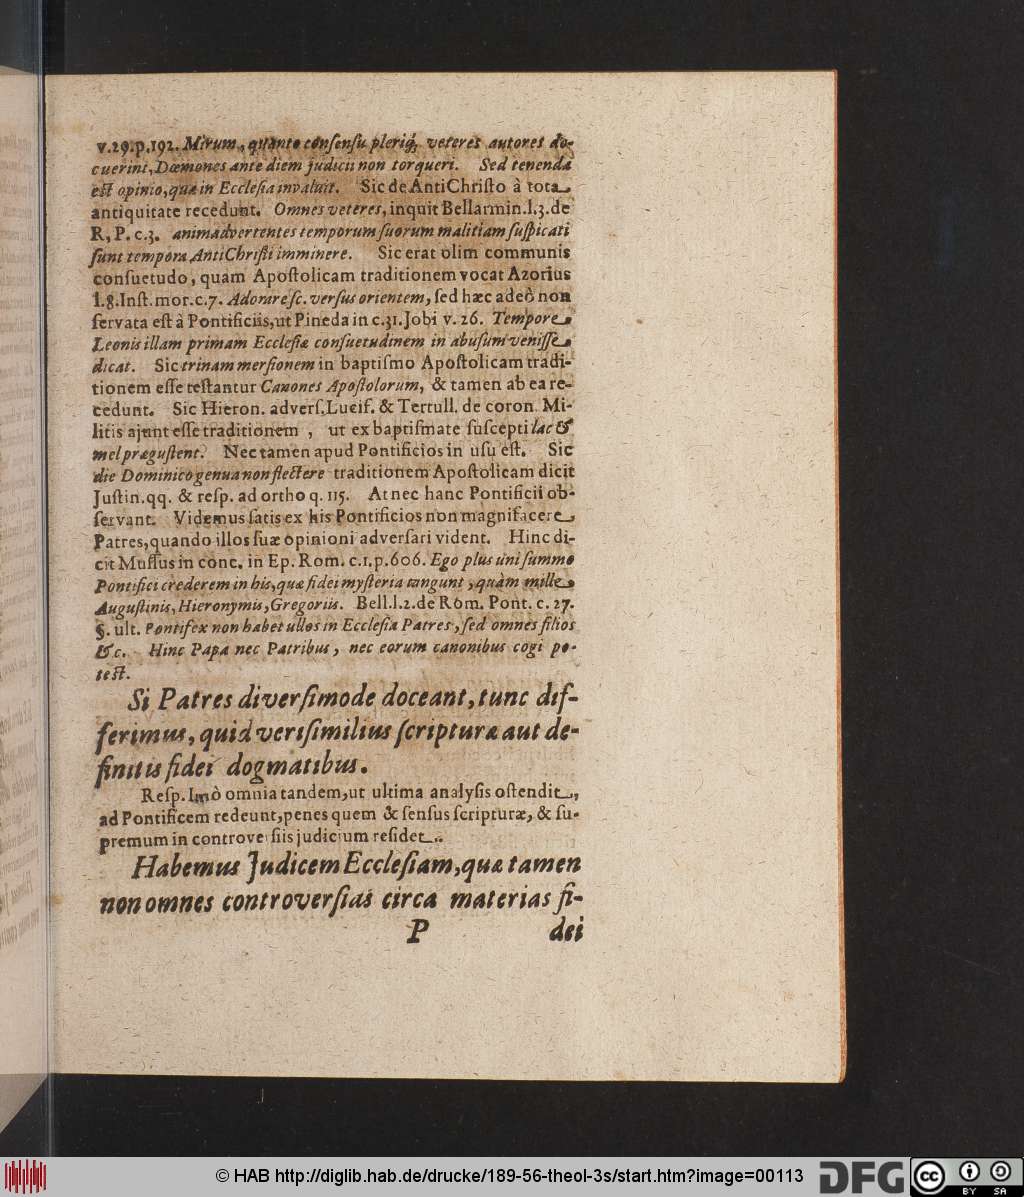 v.29.p.192. Mirum, quanto consensu pleriq́; veteres autores do-
cuerint, Dæmones ante diem judicii non torqueri. Sed tenenda
est opinio, quæ in Ecclesia invaluit. Sic de AntiChristo à tota
antiquitate recedunt. Omnes veteres, inquit Bellarmin. l.3. de
R, P. c.3. animadvertentes temporum suorum malitiam suspicati
sunt tempora AntiChristi imminere. Sic erat olim communis
consuetudo, quam Apostolicam traditionem vocat Azorius
l.8. Inst. mor. c.7. Adorare sc. versus orientem, sed hæc adeò non
servata est à Pontificiis, ut Pineda in c.31. Jobi v. 26. Tempore
Leonis illam primam Ecclesiæ consuetudinem in abusum venisse
dicat. Sic trinam mersionem in baptismo Apostolicam tradi-
tionem esse testantur Canones Apostolorum, & tamen ab ea re-
cedunt. Sic Hieron. advers. Lucif. & Tertull. de coron. Mi-
litis ajunt esse traditionem, ut ex baptismate suscepti lac &
mel prægustent. Nec tamen apud Pontificios in usu est. Sic
die Dominico genua non flectere traditionem Apostolicam dicit
Justin. qq. & resp. ad ortho q. 115. At nec hanc Pontificii ob-
servant. Videmus satis ex his Pontificios non magnifacere
Patres, quando illos suæ opinioni adversari vident. Hinc di-
cit Mussus in conc. in Ep. Rom. c.1. p.606. Ego plus uni summo
Pontifici crederem in his, quæ fidei mysteria tangunt, quàm mille
Augustinis, Hieronymis, Gregoriis. Bell. l.2. de Rom. Pont. c. 27.
§. ult. Pontifex non habet ullos in Ecclesia Patres, sed omnes filios
&c. Hinc Papa nec Patribus, nec eorum canonibus cogi po-
test.
Si Patres diversimode doceant, tunc dif-
ferimus, quid verisimilius scripturæ aut de-
finitis fidei dogmatibus.
Resp. Imò omnia tandem, ut ultima analysis ostendit,
ad Pontificem redeunt, penes quem & sensus scripturæ, & su-
premum in controversiis judicium residet.
Habemus Judicem Ecclesiam, quæ tamen
non omnes controversias circa materias fi-
P dei
© HAB http://diglib.hab.de/drucke/189-56-theol-3s/start.htm?image=00113
DFG
cc BY SA